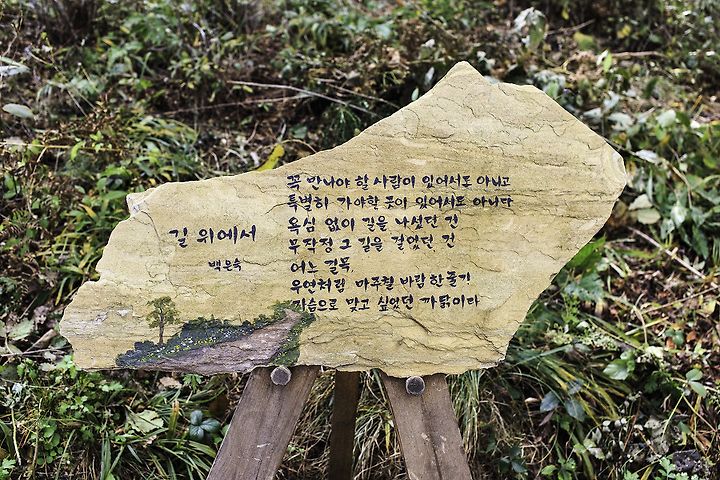 길 위에서
백온숙
꼭 만나야 할 사람이 있어서도 아니고
특별히 가야할 곳이 있어서도 아니다
욕심 없이 길을 나섰던 건
무작정 그 길을 걸었던 건
어느 길목,
우연처럼 마주칠 바람 한 줄기
가슴으로 맞고 싶었던 까닭이다